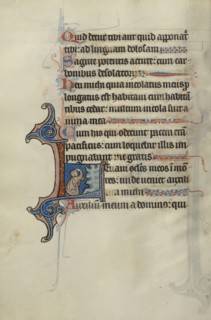 Quid detur tibi aut quid apponat
tibi: ad linguam dolosam
Sagitte potentis acute: cum car
bonibus desolatoriis
Heu michi quia incolatus meus p
longatus est habitavi cum habitan
tibus cedar: multum incola fuit a
nima mea
Cum hiis qui oderunt pacem eram
pacificus: cum loquebar illis im
pugnabant me gratis
Levavi oculos meos i mon
tes: unde veniet auxili
um michi
Auxilium meum a domino: qui